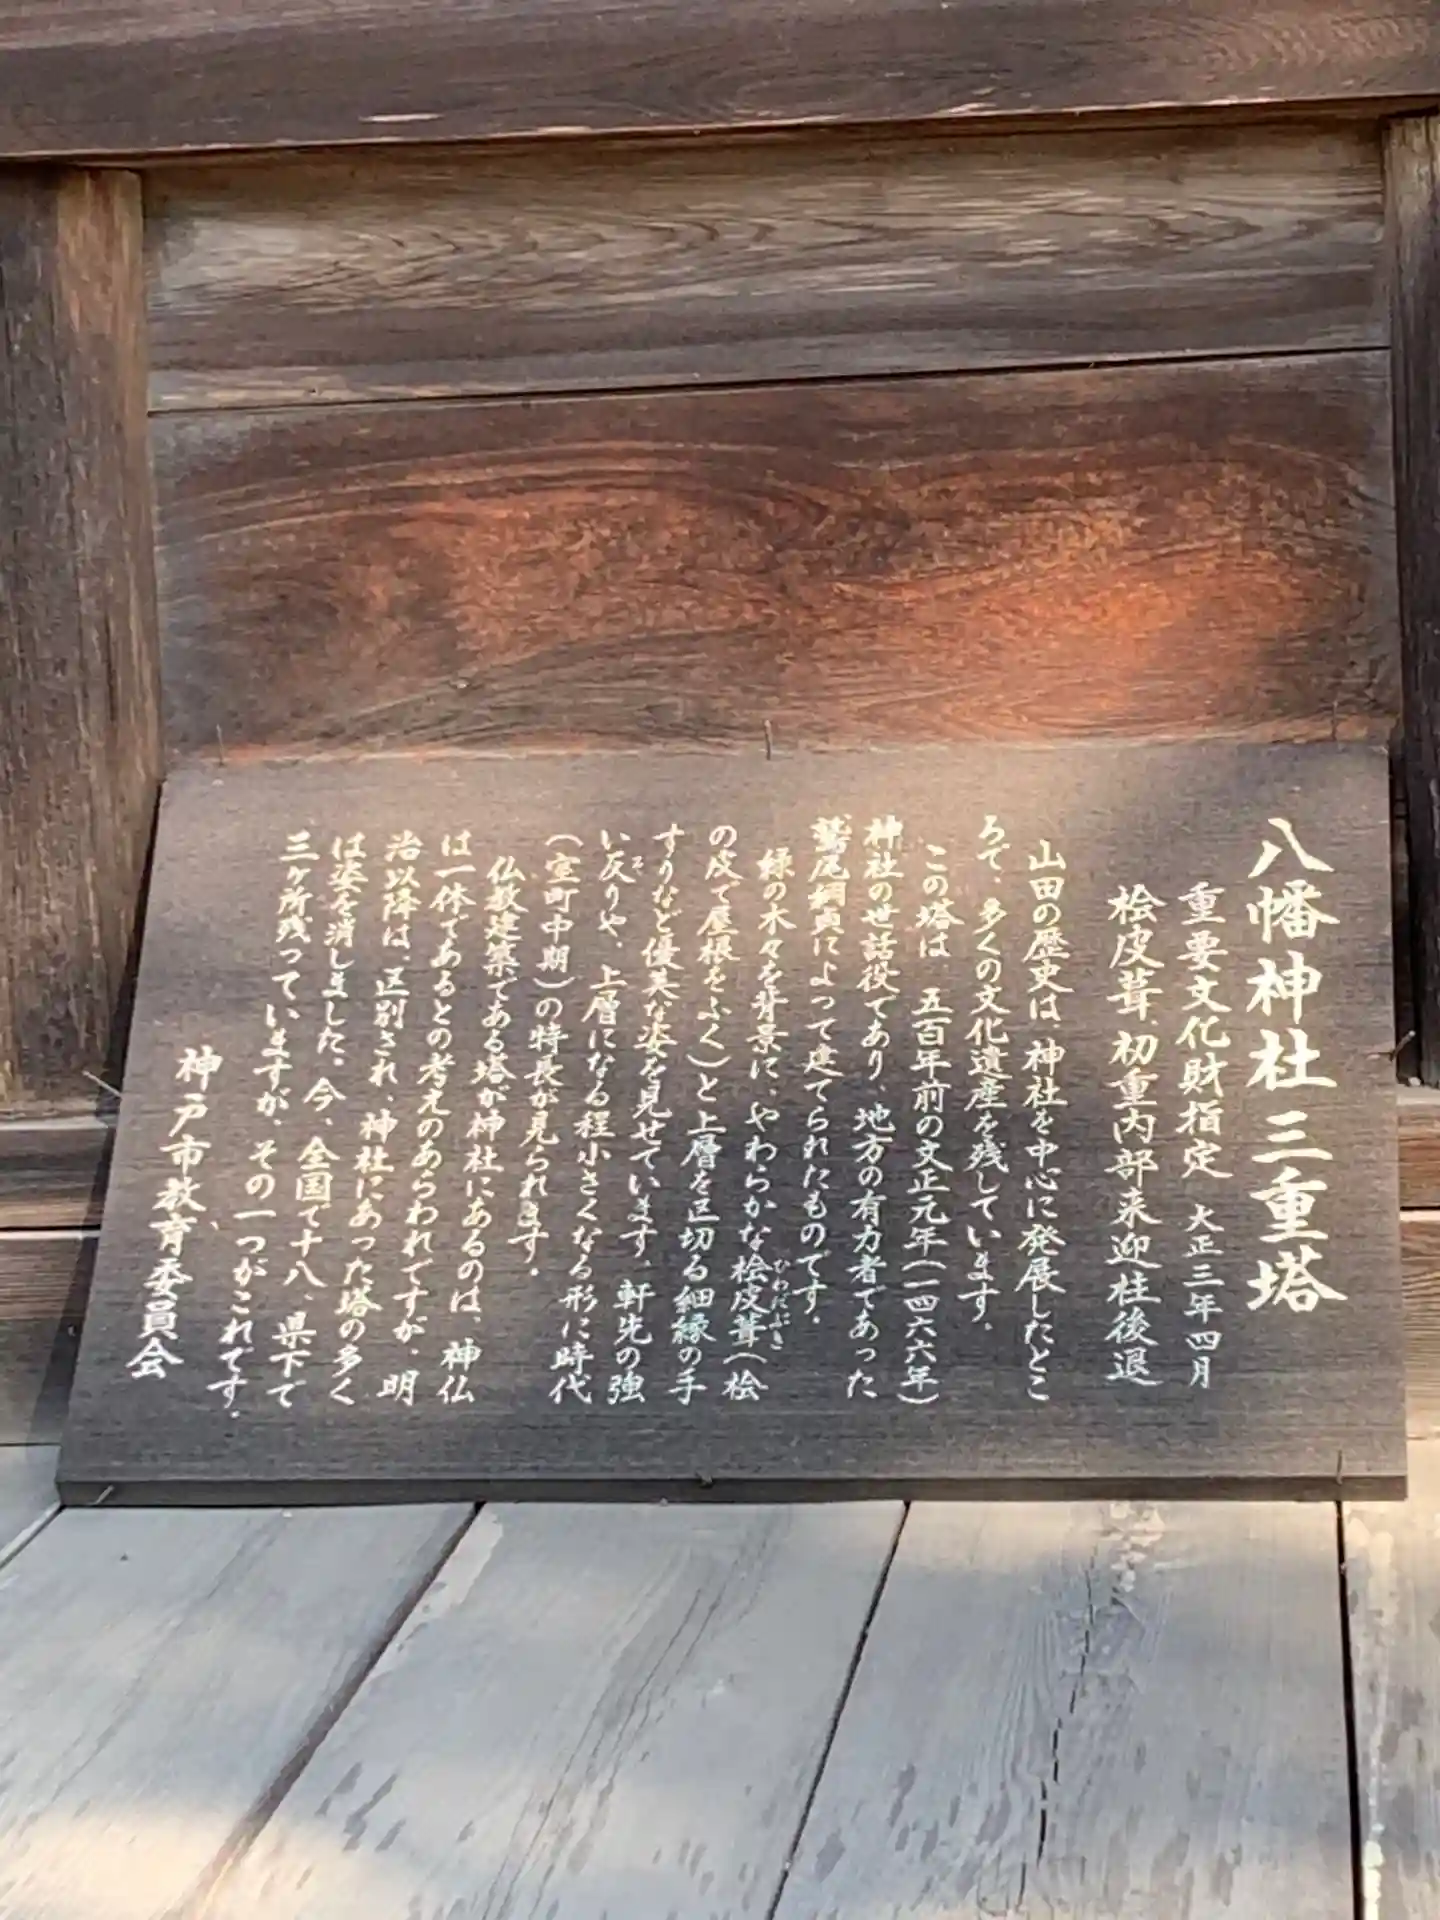 八幡神社三重塔
重要文化財指定 大正三年四月
桧皮葺、初重内部来迎柱後退
山田の歴史は、神社を中心に発展したとこ
ろで、多くの文化遺産を残しています。
この塔は 五百年前の文正元年(一四六六年)
神社の世話役であり、地方の有力者であった
鷲尾綱貞によって建てられたものです。
緑の木々を背景に、やわらかな桧皮葺(桧
ひわだぶき
の皮で屋根をふく)と上層を区切る細縁の手
すりなど優美な姿を見せています、軒先の強
い反りや、上層になる程小さくなる形に時代
そ
(室町中期)の特長が見られます。
仏教建築である塔が神社にあるのは、神仏
は一体であるとの考えのあらわれですが、明
治以降は、区別され、神社にあった塔の多く
は姿を消しました。今、全国で十八、県下で
三ヶ所残っていますが、その一つがこれです。
神戸市教育委員会